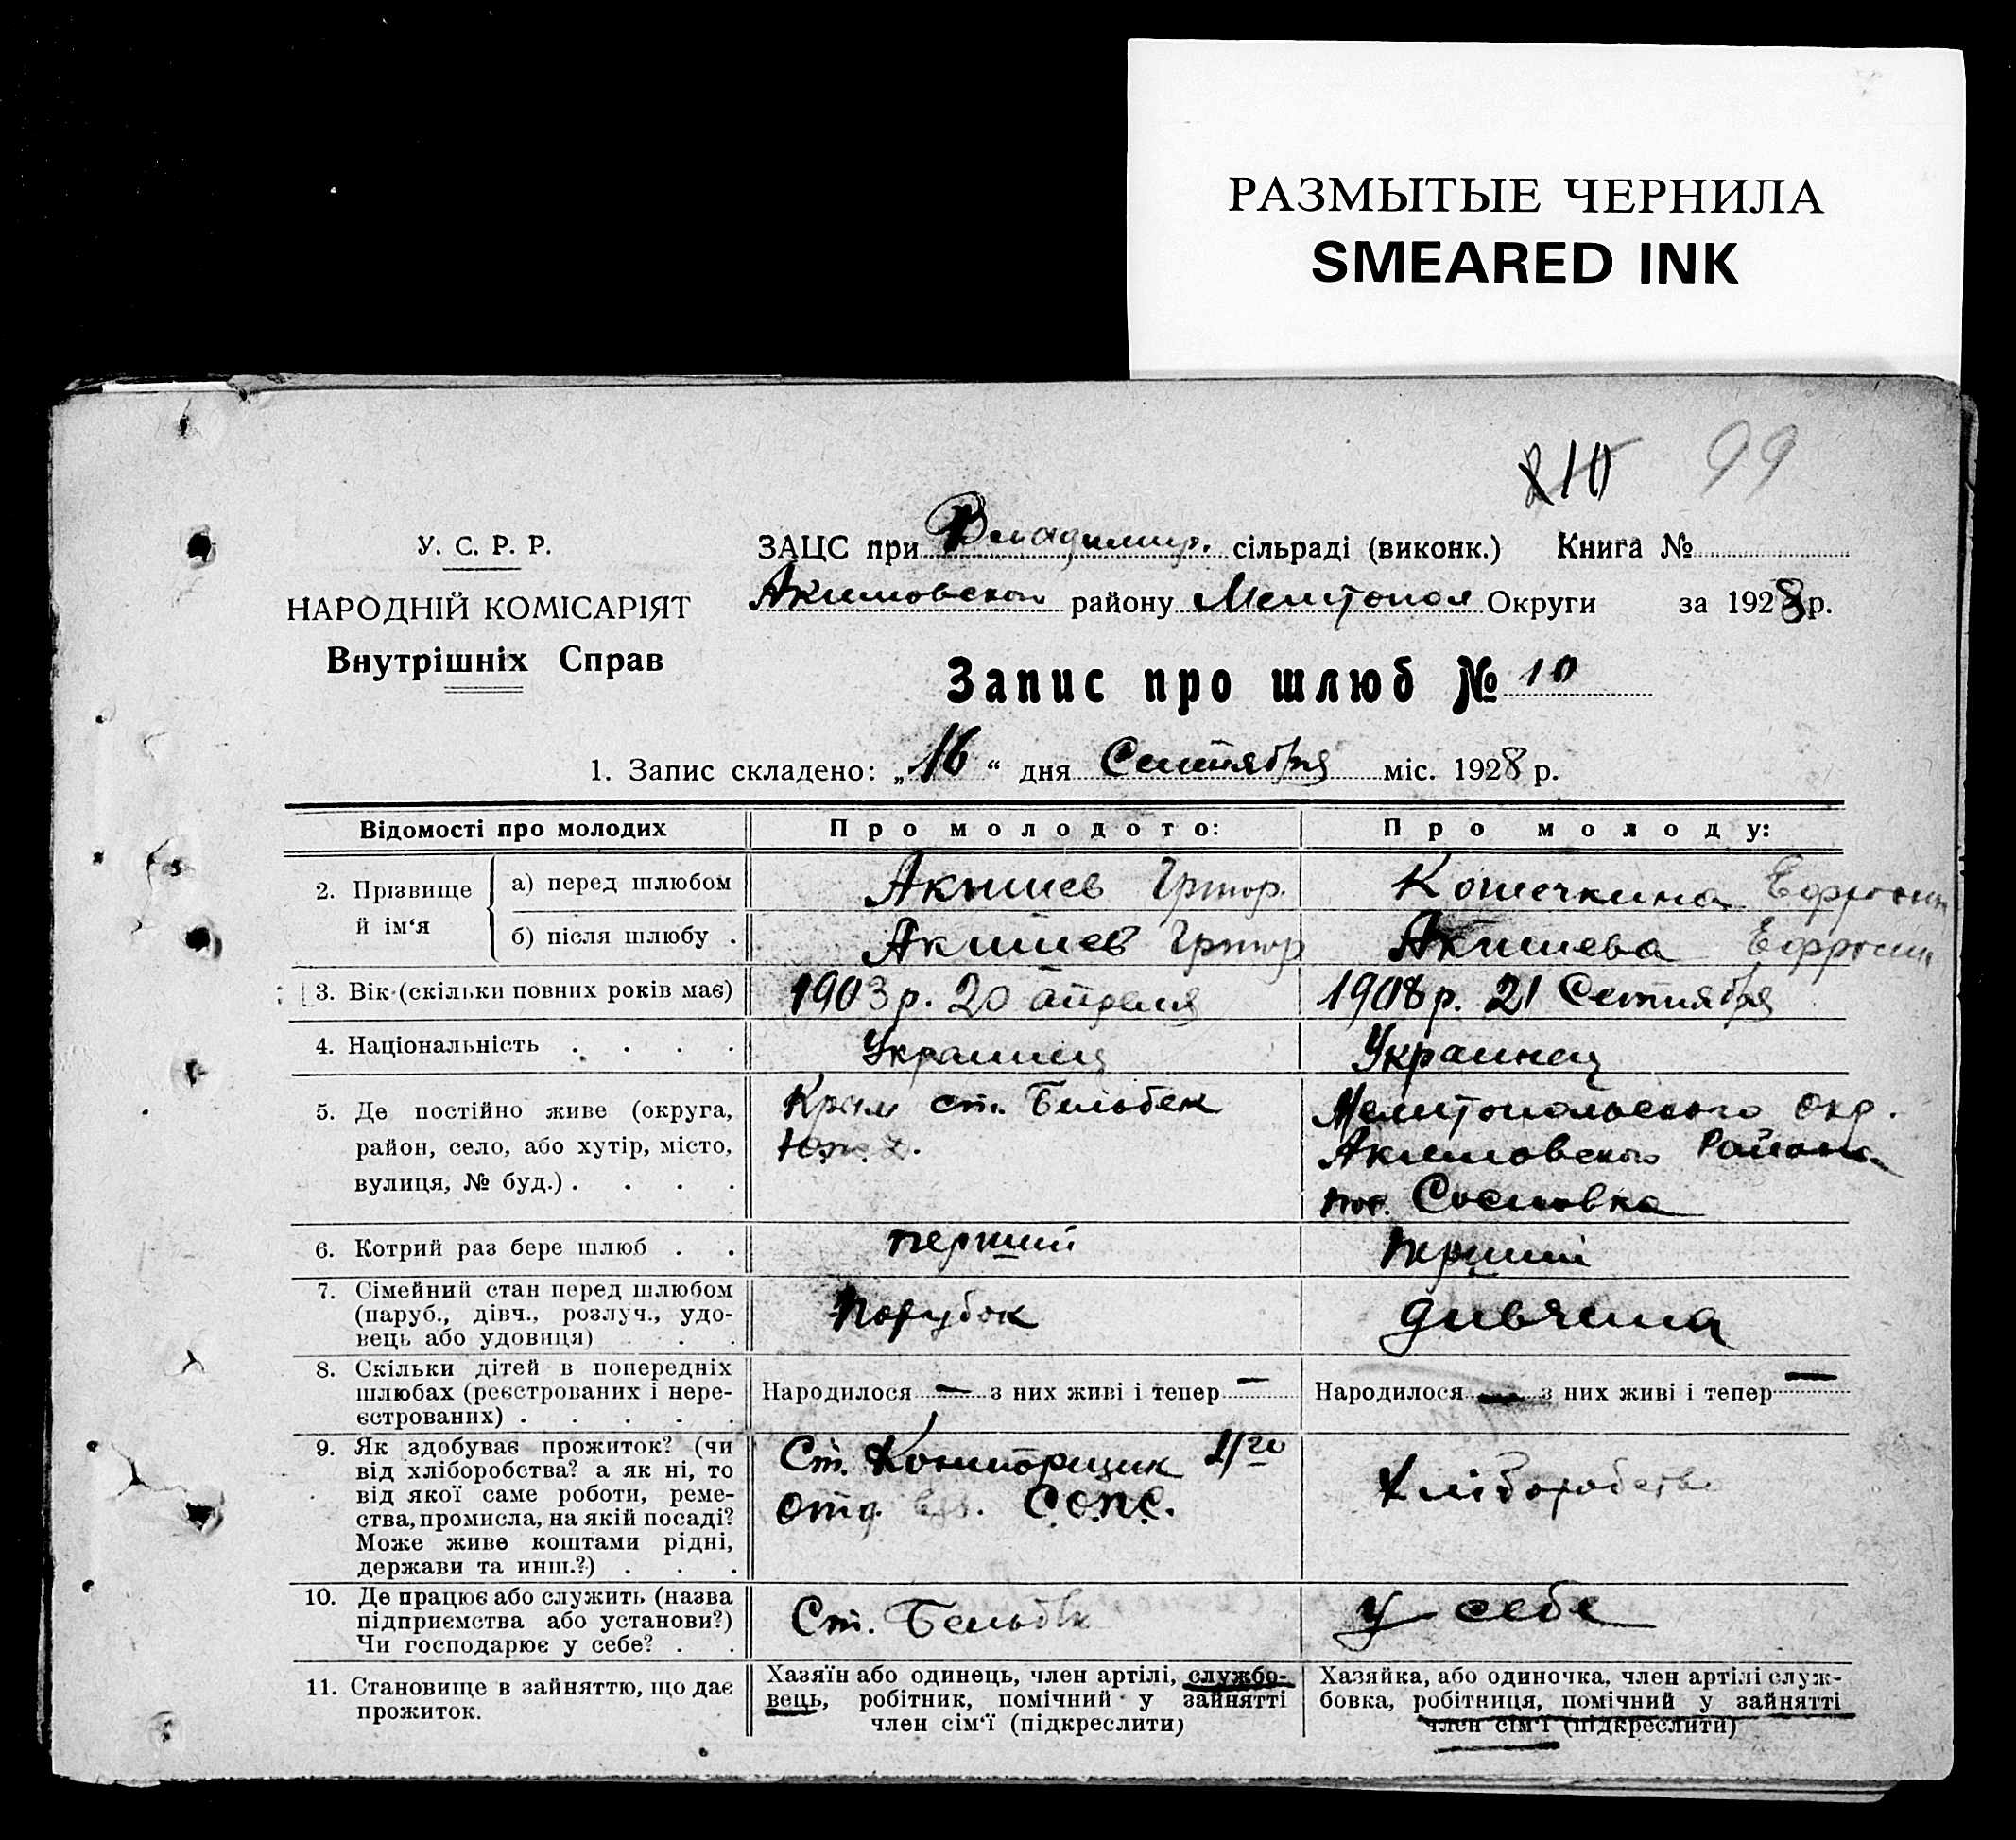 РАЗМЫТЫЕ ЧЕРНИЛА
SMEARED INK
10 99
У. С. Р. Р.
НАРОДНІЙ КОМІСАРІЯТ
Внутрішніх Справ
ЗАЦС при Владимир. сільраді (виконк.) Книга №
Акимовского району Мелитопол Округи за 1928 р.
Запис про шлюб № 10
1. Запис складено: „16“ дня Сентября міс. 1928 р.
Відомості про молодих
Про молодого:
Про молоду:
2. Прізвище й ім‘я
а) перед шлюбом
Акишев Григор.
Кошечкина Ефросин
б) після шлюбу .
Акишев Григор
Акишева Ефросин
3. Вік (скільки повних років має)
1903 р. 20 апреля
1908 р. 21 Сентября
4. Національність . . . .
Украинец
Украинец
5. Де постійно живе (округа,
район, село, або хутір, місто,
вулиця, № буд.) . . . .
Крым ст. Бельбек
Мелитопольского окр.
Акимовского Района
пос. Сосновка
6. Котрий раз бере шлюб . .
перший
перший
7. Сімейний стан перед шлюбом
(паруб., дівч., розлуч., удо-
вець або удовиця) . .
Порубок
дивчина
8. Скільки дітей в попередніх
шлюбах (реєстрованих і нере-
єстрованих) . . . . .
Народилося — з них живі і тепер —
Народилося — з них живі і тепер —
9. Як здобуває прожиток? (чи
від хліборобства? а як ні, то
від якої саме роботи, реме-
ства, промисла, на якій посаді?
Може живе коштами рідні,
держави та инш.?) . . .
Ст. Конторщик
отд. С.О.П.С.
Хліборобство
10. Де працює або служить (назва
підприємства або установи?)
Чи господарює у себе? . .
Ст. Бельбек
у себе
11. Становище в зайняттю, що дає
прожиток.
Хазяїн або одинець, член артілі, службо-
вець, робітник, помічний у зайнятті
член сім‘ї (підкреслити)
Хазяйка, або одиночка, член артілі служ-
бовка, робітниця, помічний у зайнятті
член сім‘ї (підкреслити)